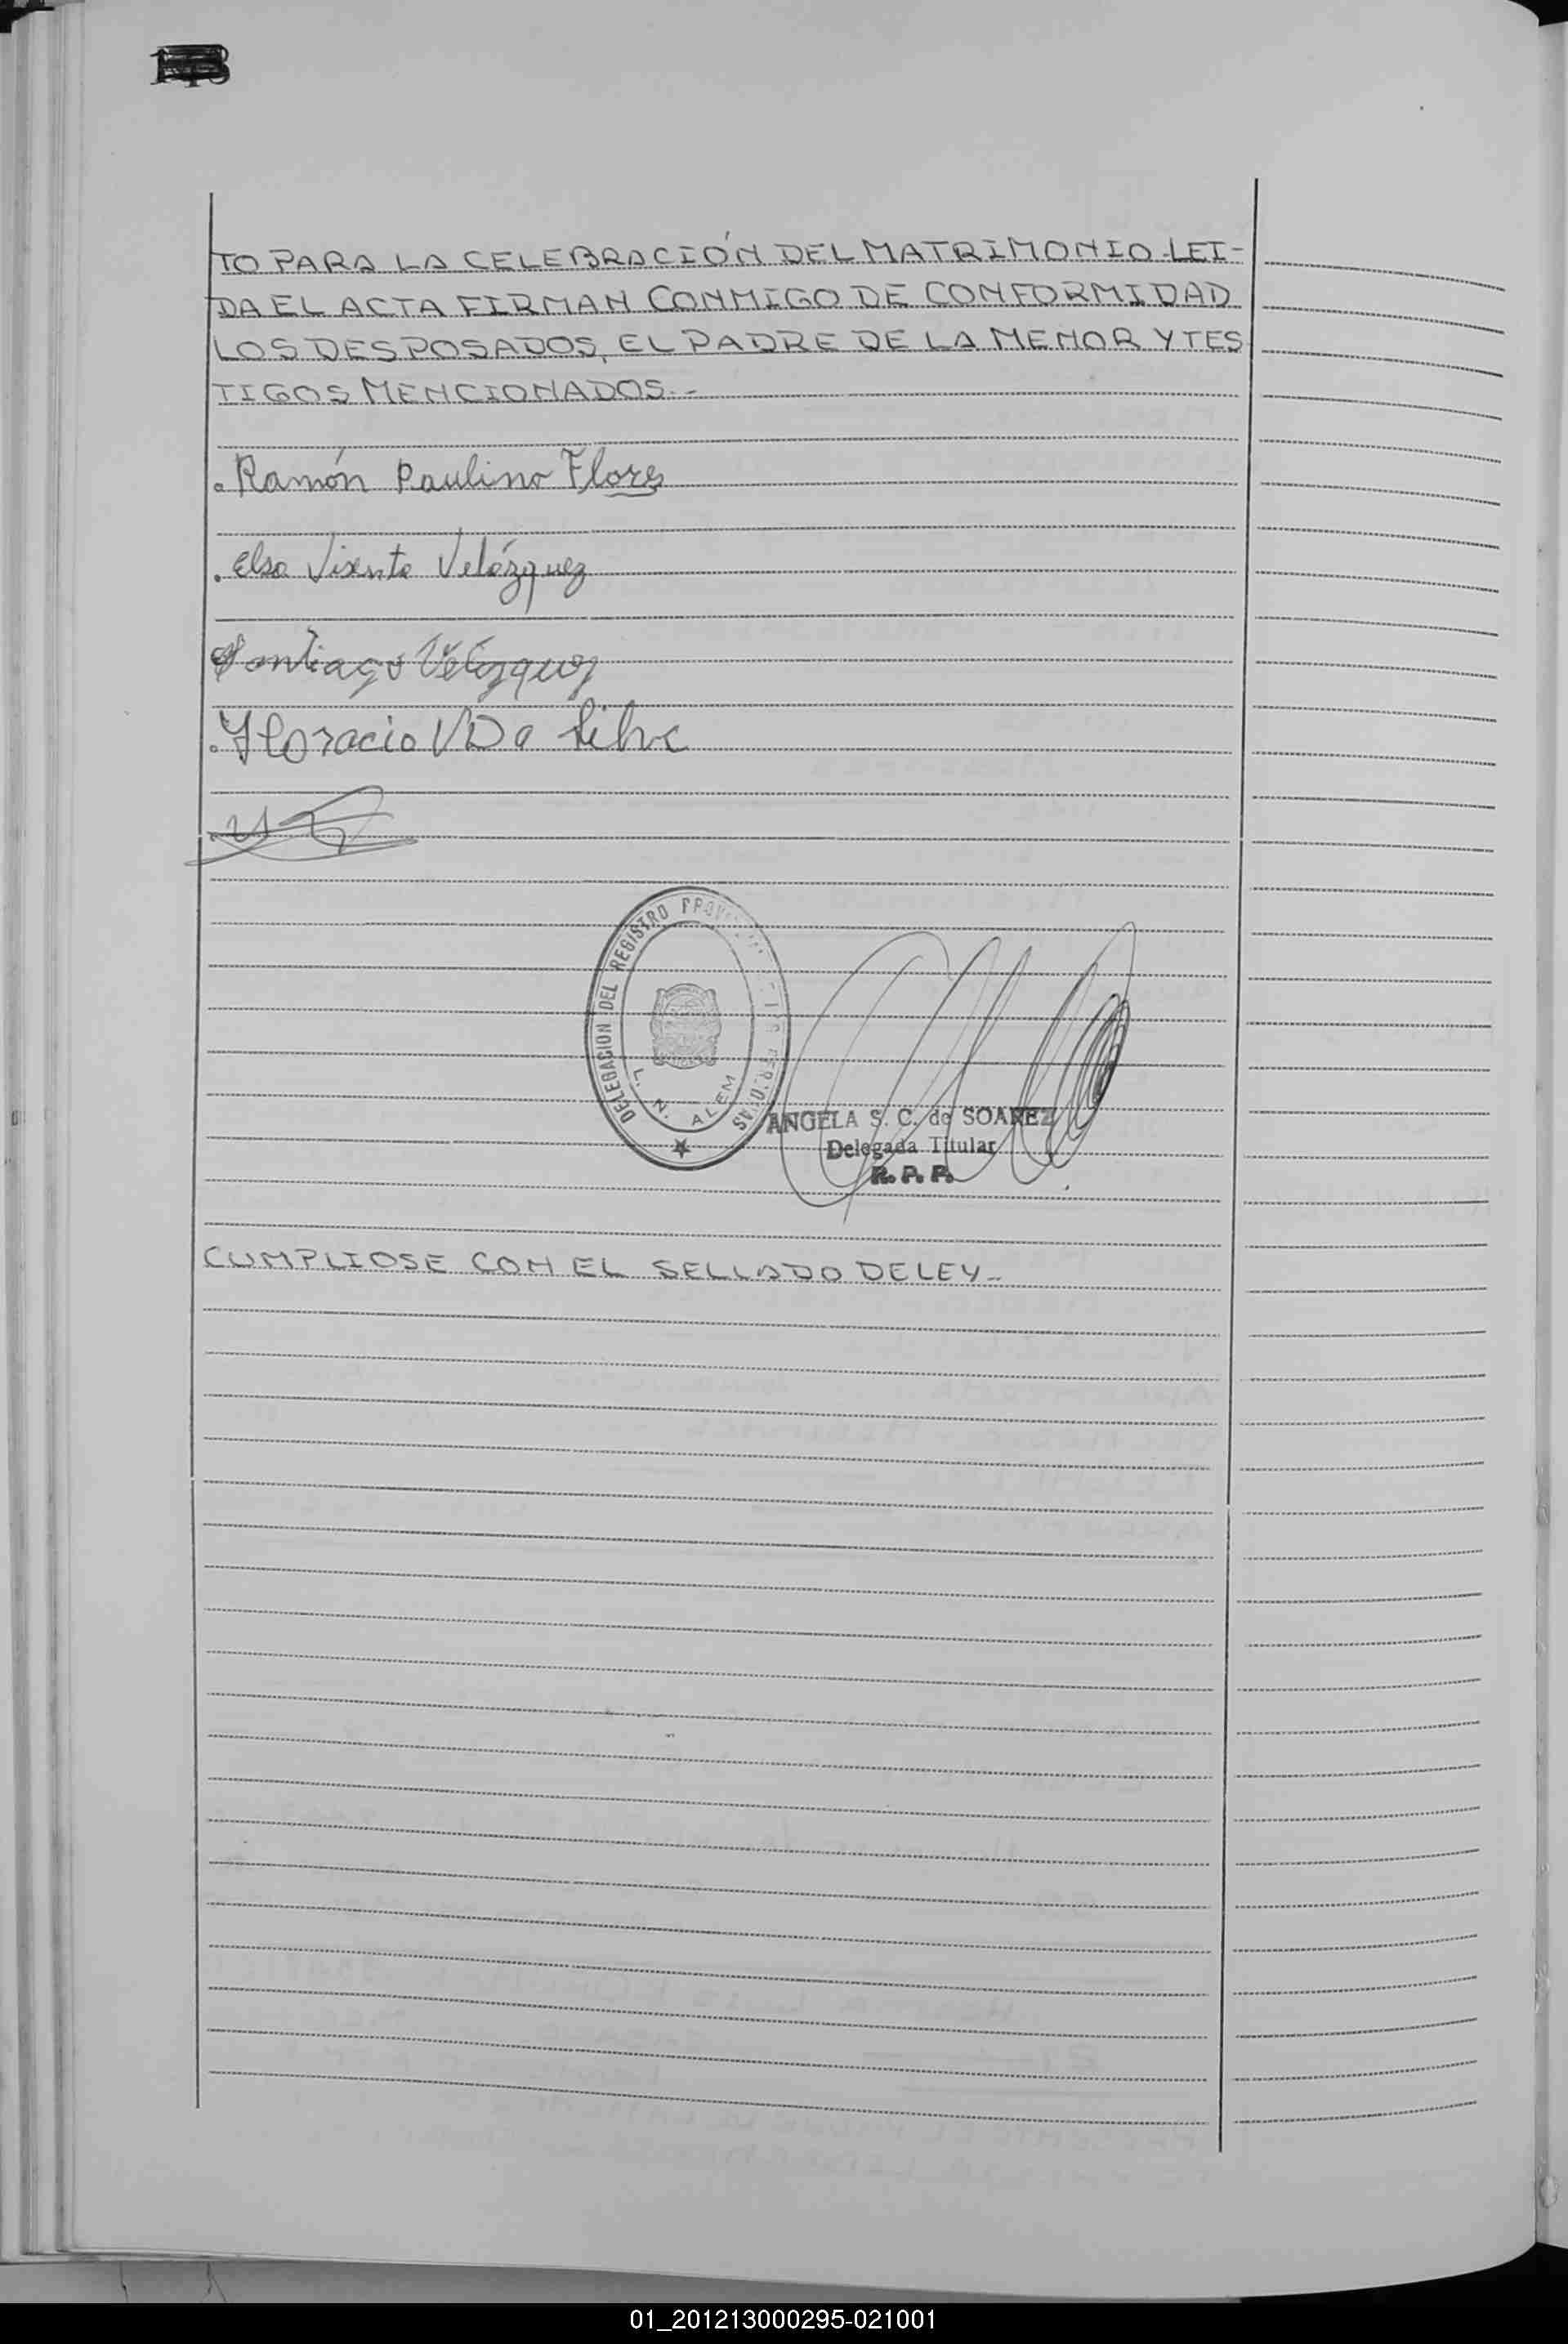 TO PARA LA CELEBRACIÓN DEL MATRIMONIO. LEI-
DA EL ACTA FIRMAN CONMIGO DE CONFORMIDAD
LOS DESPOSADOS, EL PADRE DE LA MENOR Y TES
TIGOS MENCIONADOS.-
Ramón Paulino Flores
Elsa Vixenta Velázquez
Santiago Velázquez
Horacio V Da Silva
DELEGACION DEL REGISTRO
L. N. ALEM
ANGELA S. C. de SOAREZ
Delegada Titular
R. P. P.
CUMPLIOSE CON EL SELLADO DE LEY.-
01_201213000295-021001